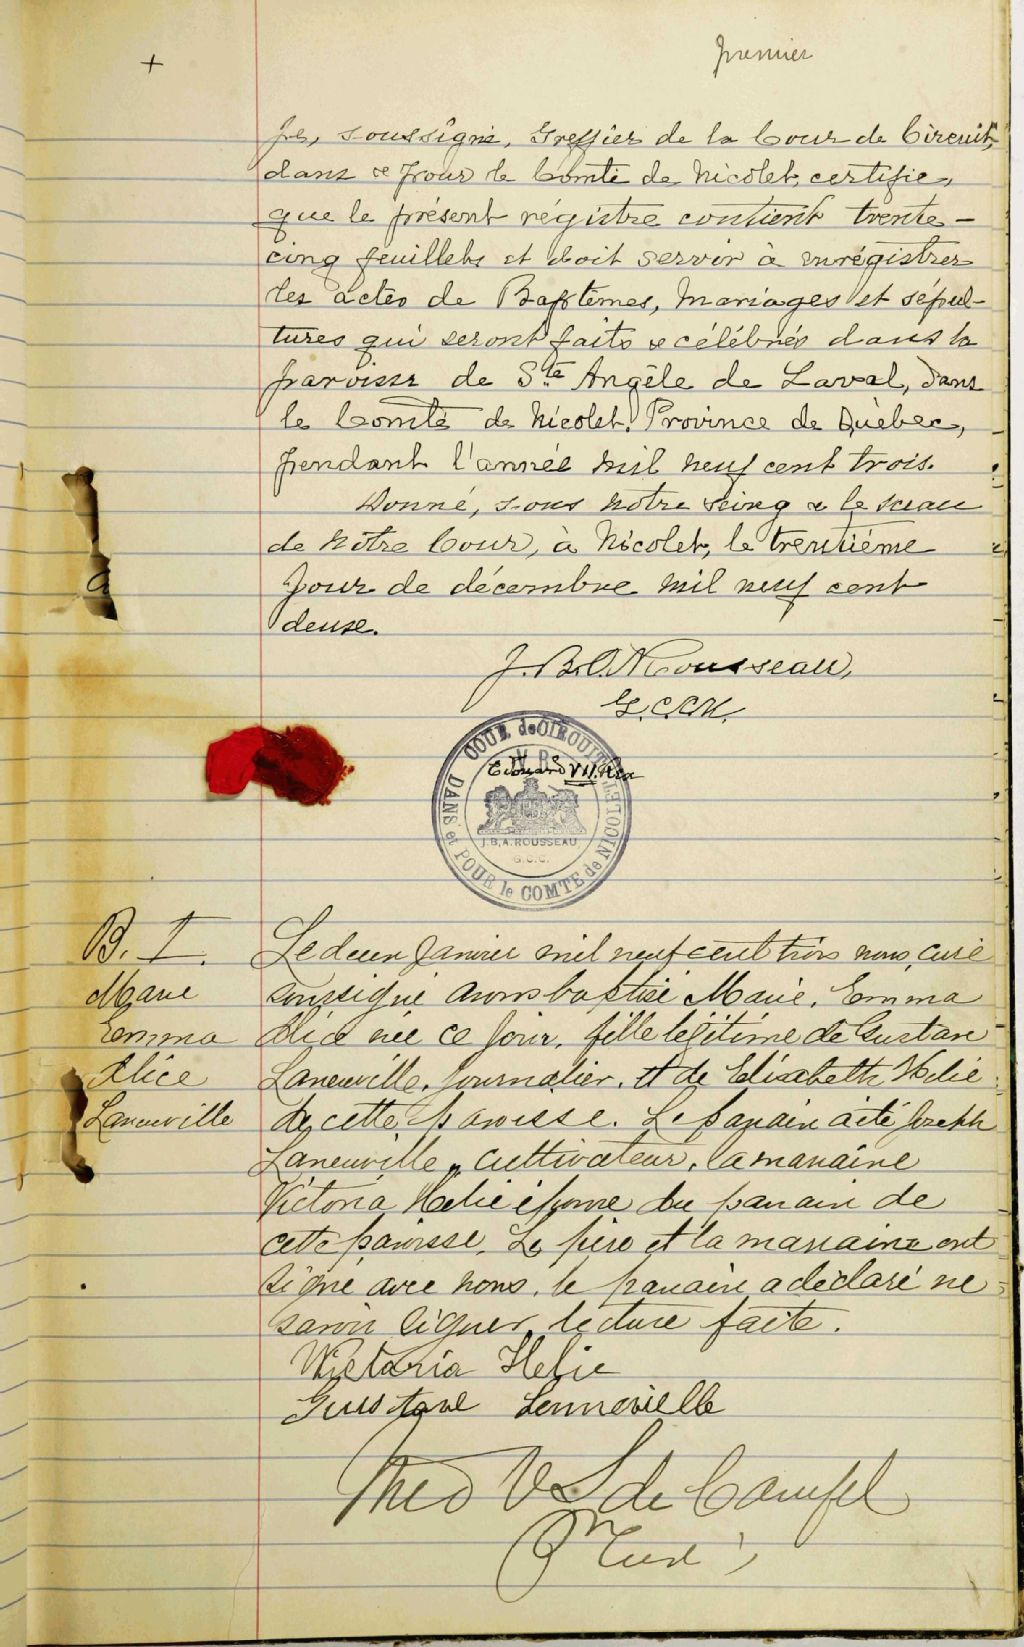 +
premier
Je, soussigné, Greffier de la Cour de Circuit,
dans & pour le Comté de Nicolet, certifie,
que le présent régistre contient trente-
cinq feuillets et doit servir à enrégistrer
les actes de Baptêmes, Mariages et sépul-
tures qui seront faits & célébrés dans la
paroisse de Ste Angèle de Laval, dans
le Comté de Nicolet, Province de Québec,
pendant l'année mil neuf cent trois.
Donné, sous notre seing & le sceau
de notre Cour, à Nicolet, le trentième
jour de décembre mil neuf cent
deux.
J.B.A. Rousseau,
G.C.C.N.
COUR de CIRCUIT
DANS et POUR le COMTE de NICOLET
V R
Edouard VII. Rex
J.B.A. ROUSSEAU
G.C.C.
B. 1.
Marie
Emma
Alice
Laneuville
Le deux Janvier mil neuf cent trois nous, curé
soussigné avons baptisé Marie, Emma
Alice née ce jour, fille légitime de Gustave
Laneuville, journalier, et de Elisabeth Hélie
de cette paroisse. Le parrain a été Joseph
Laneuville, cultivateur, la marraine
Victoria Hélie épouse du parrain de
cette paroisse. Le père et la marraine ont
signé avec nous, le parrain a déclaré ne
savoir signer, lecture faite.
Wictaria Helie
Gustave Lennevielle
Theo
de
Ptre Curé